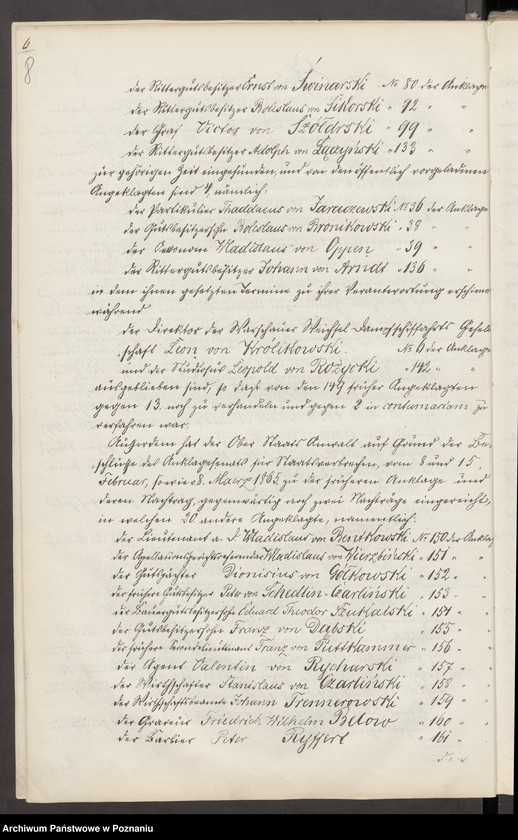 6
8
der Rittergutsbesitzer Ernst von Swinarski No 80 der Anklage
der Rittergutsbesitzer Boleslaus von Sikorski " 92 " "
der Graf Victor von Szółdrski " 99 " "
der Rittergutsbesitzer Adolph von Łączyński " 133 " "
zur gehörigen Zeit eingefunden, und von den öffentlich vorgeladenen
Angeklagten sind 4, nämlich:
der Partikulier Thaddaeus von Jaraczewski No 36 der Anklage
der Gutsbesitzersohn Boleslaus von Bronikowski " 38 " "
der Oekonom Wladislaus von Oppen " 39 " "
der Rittergutsbesitzer Johann von Arndt " 136 " "
in dem ihnen gesetzten Termine zu ihrer Verantwortung erschienen
während
der Direktor der Warschauer Weichsel Dampfschifffahrts Gesell
schaft Leon von Królikowski. No 9 der Anklage
und der Studiosus Leopold von Rożycki " 142 " "
ausgeblieben sind, so daß von den 149 früher Angeklagten
gegen 13. noch zu verhandeln und gegen 2 in contumaciam zu
verfahren war.
Außerdem hat der Ober Staats Anwalt auf Grund der Be-
schlüsse des Anklagesenats für Staatsverbrechen, vom 8 und 15.
Februar, sowie 8. Maerz 1865 zu der früheren Anklage und
deren Nachtrag, gegenwärtig noch zwei Nachträge eingereicht,
in welchen 20. andere Angeklagte, namentlich:
der Lieutenant a. D Wladislaus von Bentkowski No 150 der Anklage
der Apellationsgerichtsreferendar Wladislaus von Wierzbiński " 151 " "
der Gutspächter Dionisius von Gółkowski " 152 " "
der frühere Gutsbesitzer Peter von Schedlin-Czarliński " 153 " "
der Bauergutsbesitzersohn Eduard Theodor Szukalski " 154 " "
der Gutsbesitzersohn Franz von Dąbski " 155 " "
der frühere Secondelieutenant Franz von Puttkammer " 156 " "
der Agent Valentin von Rycharski " 157 " "
der Wirthschafter Stanislaus von Czarliński " 158 " "
der Wirthschaftsbeamte Johann Trennerowski " 159 " "
der Graveur Friedrich Wilhelm Below " 160 " "
der Barbier Peter Ryffert " 161 " "
Archiwum Państwowe w Poznaniu